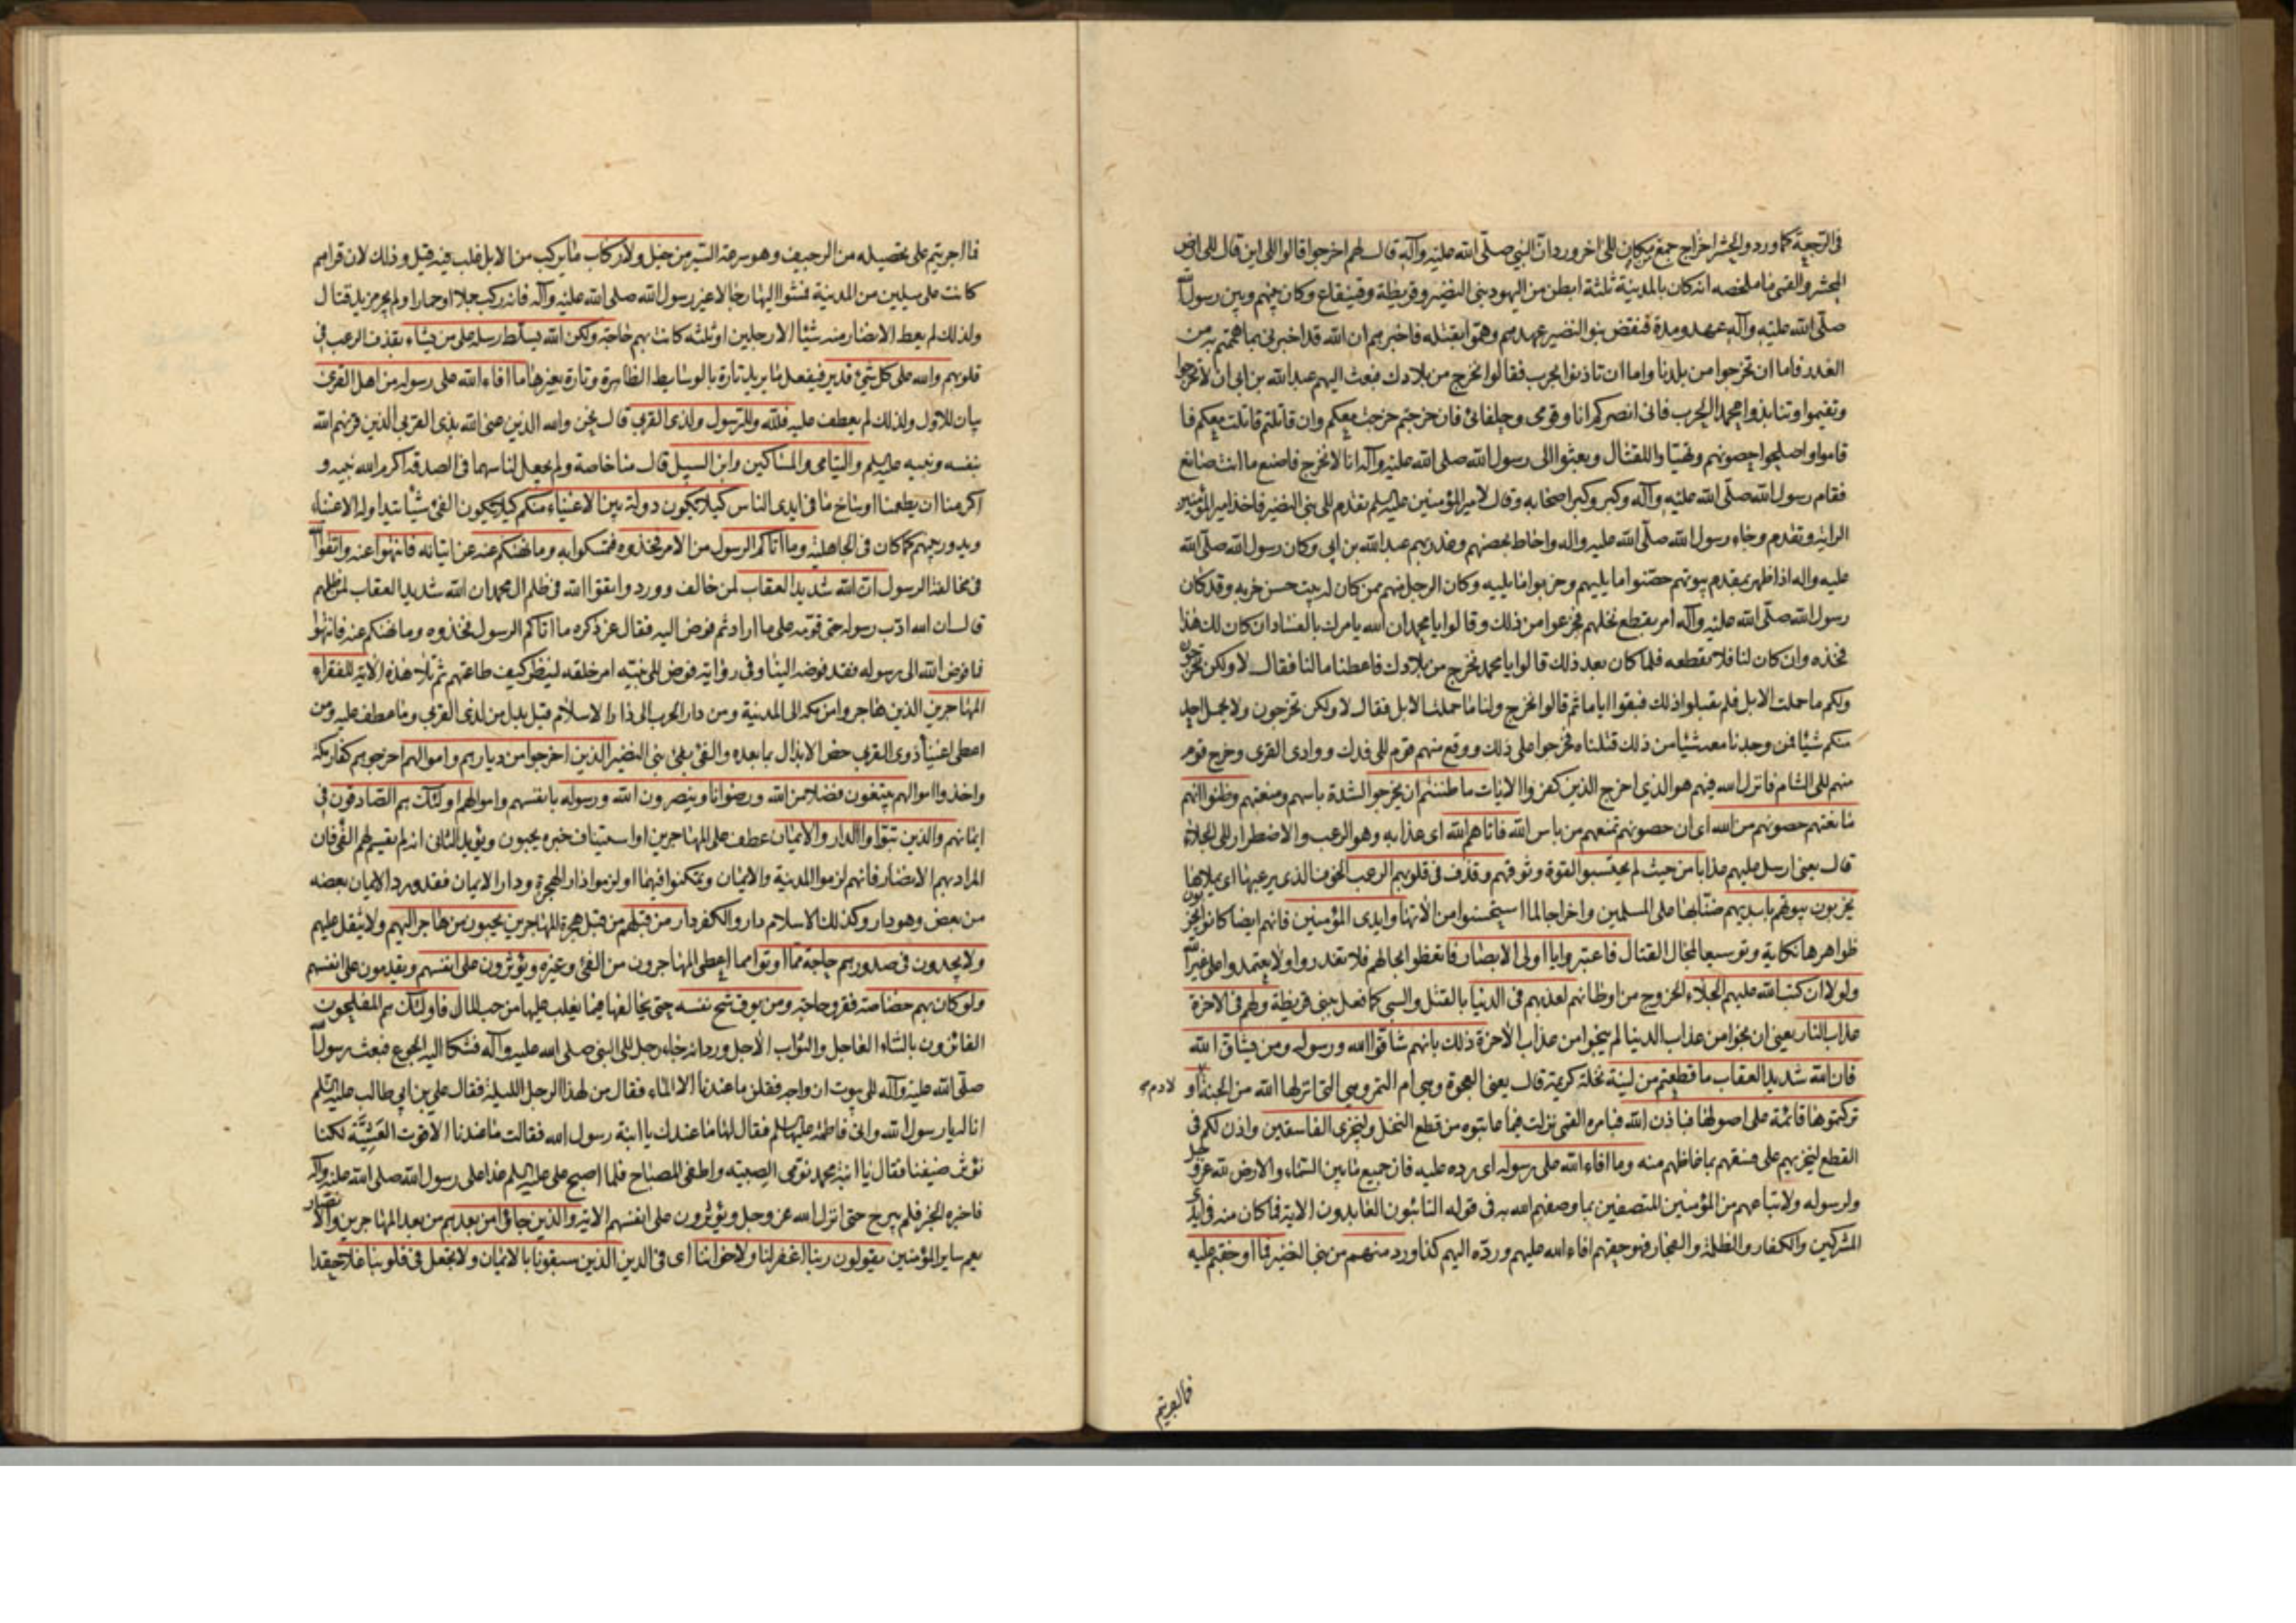 فى الرجعة كما ورد والحشر اخراج جمع من مكان الى اخر ورد ان النبى صلى الله عليه وآله قال لهم اخرجوا قالوا الى اين قال الى ارض
المحشر والقمى ما ملخصه انه كان بالمدينة ثلثة ابطن من اليهود بنى النضير وقريظة وقينقاع وكان بينهم وبين رسول الله
صلى الله عليه وآله عهد ومدة فنقض بنو النضير عهدهم وهموا بقتله فاخبرهم ان الله قد اخبرنى بما هممتم به من
الغدر فاما ان تخرجوا من بلدنا واما ان تاذنوا بحرب فقالوا نخرج من بلادك فبعث اليهم عبد الله بن ابى ان لا تخرجوا
وتقيموا وتنابذوا محمدا الحرب فانى انصركم انا وقومى وحلفائى فان خرجتم خرجت معكم وان قاتلتم قاتلت معكم فا
قاموا واصلحوا حصونهم وتهيّاوا للقتال وبعثوا الى رسول الله صلى الله عليه وآله انا لا نخرج فاصنع ما انت صانع
فقام رسول الله صلى الله عليه وآله وكبر وكبر اصحابه وقال لامير المؤمنين عليه السلم تقدم الى بنى النضير فاخذ امير المؤمنين
الراية وتقدم وجاء رسول الله صلى الله عليه واله واحاط بحصنهم وغدر بهم عبد الله بن ابى وكان رسول الله صلى الله
عليه واله اذا ظهر بمقدم بيوتهم حصّنوا ما يليهم وخربوا ما يليه وكان الرجل منهم ممن كان له بيت حسن خربه وقد كان
رسول الله صلى الله عليه وآله امر بقطع نخلهم فجزعوا من ذلك وقالوا يا محمد ان الله يامرك بالفساد ان كان لك هذا
فخذه وان كان لنا فلا تقطعه فلما كان بعد ذلك قالوا يا محمد نخرج من بلادك فاعطنا مالنا فقال لا ولكن تخرجون
ولكم ما حملت الابل فلم يقبلوا ذلك فبقوا اياما ثم قالوا نخرج ولنا ما حملت الابل فقال لا ولكن تخرجون ولا يحمل احد
منكم شيئا فمن وجدنا معه شيئا من ذلك قتلناه فخرجوا على ذلك ووقع منهم قوم الى فدك ووادى القرى وخرج قوم
منهم الى الشام فانزل الله فيهم هو الذى اخرج الذين كفروا الايات ما ظننتم ان يخرجوا لشدة باسهم ومنعتهم وظنوا انهم
مانعتهم حصونهم من الله اى ان حصونهم تمنعهم من باس الله فاتاهم الله اى عذابه وهو الرعب والاضطرار الى الجلاء
قال يعنى ارسل عليهم عذابا من حيث لم يحتسبوا لقوة وثوقهم وقذف فى قلوبهم الرعب الخوف الذى يرعبها اى يملاها
يخربون بيوتهم بايديهم ضنّا بها على المسلمين واخراجا لما استحسنوا من الاتها وايدى المؤمنين فانهم ايضا كانوا يخربون
ظواهرها نكاية وتوسيعا لمجال القتال فاعتبروا يا اولى الابصار فاتعظوا بحالهم فلا تغدروا ولا يعتمدوا على غير الله
ولولا ان كتب الله عليهم الجلاء الخروج من اوطانهم لعذبهم فى الدنيا بالقتل والسبى كما فعل ببنى قريظة ولهم فى الاخرة
عذاب النار يعنى ان نجوا من عذاب الدنيا لم ينجوا من عذاب الاخرة ذلك بانهم شاقوا الله ورسوله ومن يشاق الله
فان الله شديد العقاب ما قطعتم من لينة نخلة كريمة قال يعنى العجوة وهى ام التمر وهى التى انزلها الله من الجنة او
لادم
تركتموها قائمة على اصولها فباذن الله فبامره القمى نزلت فيما عاتبوه من قطع النخل وليخزى الفاسقين واذن لكم فى
القطع ليخزيهم على فسقهم بما غاظهم منه وما افاء الله على رسوله اى رده عليه فان جميع ما بين السماء والارض لله عز وجل
ولرسوله ولاتباعهم من المؤمنين المتصفين بما وصفهم الله به فى قوله التائبون العابدون الاية فما كان منه فى ايدى
المشركين والكفار والظلمة والفجار فهو حقهم افاء الله عليهم ورده اليهم كذا ورد منهم من بنى النضير فما اوجفتم عليه
فما اجريتم
فما اجريتم على تحصيله من الوجيف وهو سرعة السير من خيل ولا ركاب ما يركب من الابل غلب فيه قيل وذلك لان قراهم
كانت على ميلين من المدينة فمشوا اليها رجالا غير رسول الله صلى الله عليه وآله فانه ركب جملا او حمارا ولم يجر مزيد قتال
ولذلك لم يعط الانصار منه شيئا الا رجلين او ثلثه كانت بهم حاجة ولكن الله يسلط رسله على من يشاء بقذف الرعب فى
قلوبهم والله على كل شئ قدير فيفعل ما يريد تارة بالوسايط الظاهرة وتارة بغيرها ما افاء الله على رسوله من اهل القرى
بيان للاول ولذلك لم يعطف عليه فلله وللرسول ولذى القربى قال نحن والله الذين عنى الله بذى القربى الذين قرنهم الله
بنفسه ونبيه عليه السلم واليتامى والمساكين وابن السبيل قال منا خاصة ولم يجعل لنا سهما فى الصدقة اكرم الله نبيه و
اكرمنا ان يطعمنا اوساخ ما فى ايدى الناس كيلا يكون دولة بين الاغنياء منكم كيلا يكون الفئ شيئا يتداوله الاغنياء
ويدور بينهم كما كان فى الجاهلية وما اتاكم الرسول من الامر فخذوه فتمسكوا به وما نهيكم عنه عن اتيانه فانتهوا عنه واتقوا الله
فى مخالفة الرسول ان الله شديد العقاب لمن خالف وورد واتقوا الله فى ظلم ال محمد ان الله شديد العقاب لمن ظلمهم
قال ان الله ادّب رسوله حتى قوّمه على ما اراد ثم فوض اليه فقال عز ذكره ما اتاكم الرسول فخذوه وما نهيكم عنه فانتهوا
فما فوض الله الى رسوله فقد فوضه الينا وفى رواية فوض الى نبيه امر خلقه لينظر كيف طاعتهم ثم تلا هذه الاية للفقراء
المهاجرين الذين هاجروا من مكة الى المدينة ومن دار الحرب الى دار الاسلام قيل بدل من لذى القربى وما عطف عليه ومن
اعطى اغنياء ذوى القربى خص الابدال بما بعده والفئ بفئ بنى النضير الذين اخرجوا من ديارهم واموالهم اخرجوهم كفار مكة
واخذوا اموالهم يبتغون فضلا من الله ورضوانا وينصرون الله ورسوله بانفسهم واموالهم اولئك هم الصادقون فى
ايمانهم والذين تبوّاوا الدار والايمان عطف على المهاجرين او استيناف خبره يحبون ويؤيد الثانى انه لم يقسم لهم الفئ فان
المراد بهم الانصار فانهم لزموا المدينة والايمان وتمكنوا فيهما او لزموا دار الهجرة ودار الايمان فقد ورد الايمان بعضه
من بعض وهو دار وكذلك الاسلام دار والكفر دار من قبلهم من قبل هجرة المهاجرين يحبون من هاجر اليهم ولا يثقل عليهم
ولا يجدون فى صدورهم حاجة مما اوتوا مما اعطى المهاجرون من الفئ وغيره ويؤثرون على انفسهم ويقدمون على انفسهم
ولو كان بهم خصاصة فقر وحاجة ومن يوق شح نفسه حتى يخالفها فيما يغلب عليها من حب المال فاولئك هم المفلحون
الفائزون بالثناء العاجل والثواب الاجل ورد انه جاء رجل الى النبى صلى الله عليه وآله فشكا اليه الجوع فبعث رسول الله
صلى الله عليه وآله الى بيوت ازواجه فقلن ما عندنا الا الماء فقال من لهذا الرجل الليلة فقال على بن ابى طالب عليه السلم
انا له يا رسول الله واتى فاطمة عليها السلم فقال لها ما عندك يا ابنة رسول الله فقالت ما عندنا الا قوت العشيّة لكنا
نؤثر ضيفنا فقال يا ابنة محمد نوّمى الصبية واطفى المصباح فلما اصبح على عليه السلم غدا على رسول الله صلى الله عليه وآله
فاخبره الخبر فلم يبرح حتى انزل الله عز وجل ويؤثرون على انفسهم الاية والذين جاؤا من بعدهم من بعد المهاجرين والانصار
يعم ساير المؤمنين يقولون ربنا اغفر لنا ولاخواننا اى فى الدين الذين سبقونا بالايمان ولا تجعل فى قلوبنا غلا حقدا